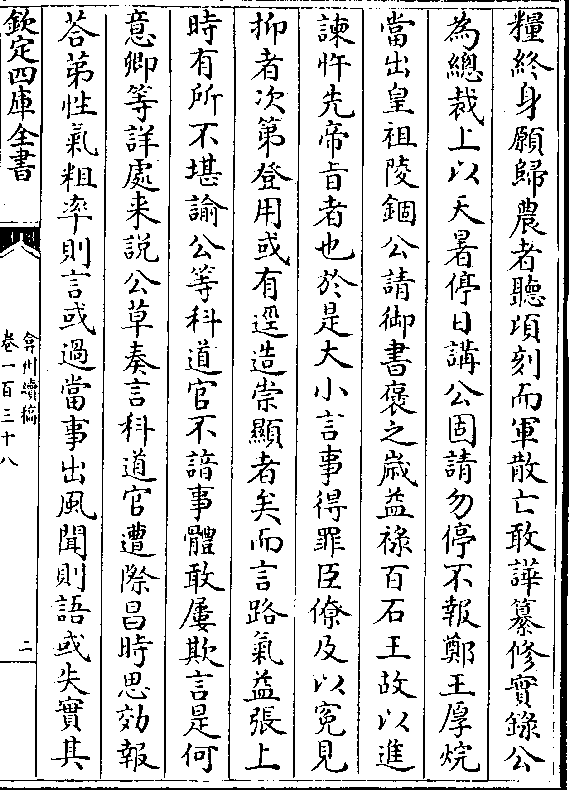 糧終身願歸農者聽頃刻而軍散亡敢譁纂修實錄公
為總裁上以天暑停日講公固請勿停不報鄭王厚烷
當出皇祖陵錮公請御書褒之歲益祿百石王故以進
諫忤先帝旨者也於是大小言事得罪臣僚及以冤見
抑者次第登用或有逕造崇顯者矣而言路氣益張上
時有所不堪諭公等科道官不諳事體敢屢欺言是何
意卿等詳處来說公草奏言科道官遭際昌時思効報
荅苐性氣粗率則言或過當事出風聞則語或失實其
欽定四庫全書
弇州續稿
卷一百三十八
二